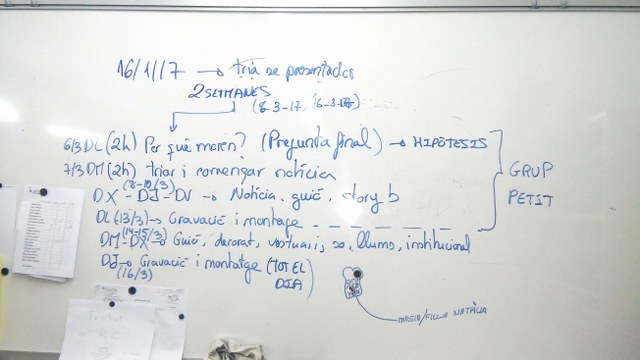 16/1/17 → tria de presentador
2 SETMANES
(8-3-17, 16-3-17)
6/3 DL (2h) Per què moren? (Pregunta final) → HIPÒTESIS
7/3 DM (2h) triar i començar notícia
GRUP
PETIT
(8-10/3)
DX - DJ - DV → Notícia, guió, story b
DL (13/3) → Gravació i montatge
(14-15/3)
DM - DX → Guió, decorat, vestuari, so, llums, institucional
DJ → Gravació i montatge (TOT EL
(16/3) DIA)
NATÀLIA